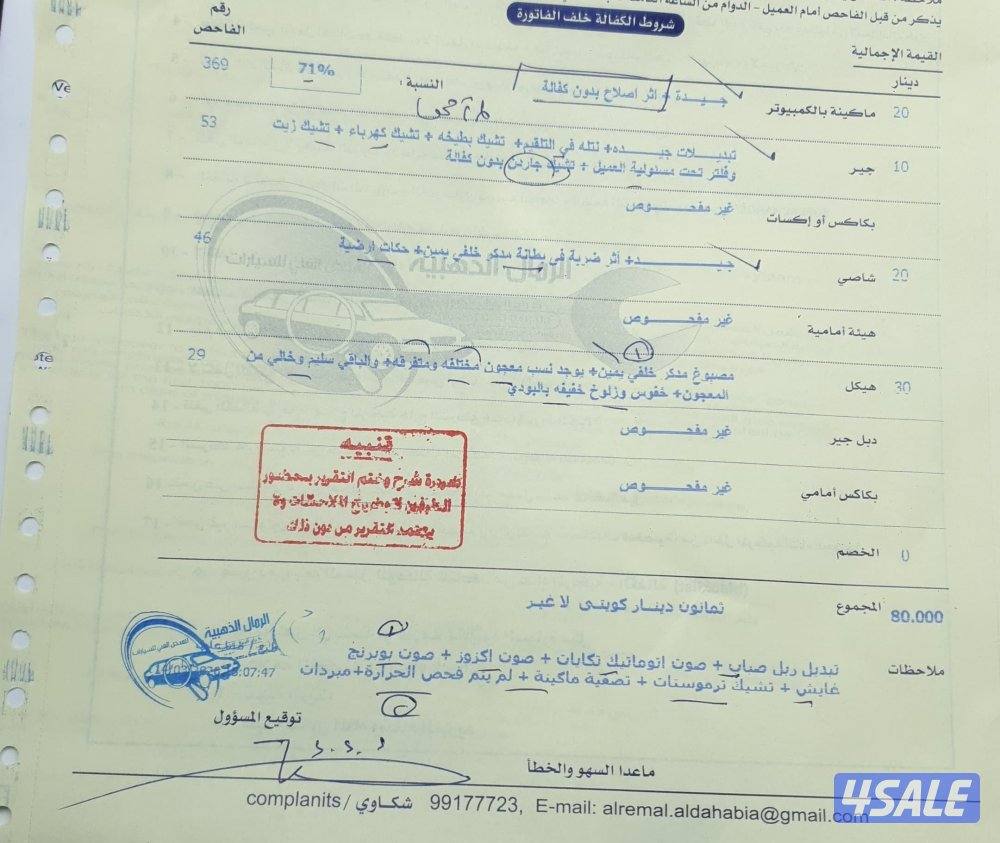 يذكر من قبل الفاحص أمام العميل - الدوام من الساعة
شروط الكفالة خلف الفاتورة
القيمة الإجمالية
رقم
الفاحص
دينار
20 ماكينة بالكمبيوتر جيـــدة + اثر اصلاح بدون كفالة النسبة: 71% 369
10 جير تبديــلات جيـــده + نتله في التلقيم + تشيك بطيخه + تشيك كهرباء + تشيك زيت 53
وفلتر تحت مسئولية العميل + تشيك جاردن بدون كفالة
بكاكس أو إكسات غير مفحـــوص
20 شاصي جيـــد + أثر ضربة في بطانة مدكر خلفي يمين + حكات ارضية 46
الرمال الذهبية
هيئة أمامية غير مفحـــوص
1
30 هيكل مصبوغ مدكر خلفي يمين + يوجد نسب معجون مختلفه ومتفرقه + والباقي سليم وخالي من 29
المعجون + خفوس وزلوخ خفيفه بالبودي
دبل جير غير مفحـــوص
بكاكس أمامي غير مفحـــوص
تنبيه
0 الخصم
80.000 المجموع ثمانون دينار كويتى لا غير
الرمال الذهبية
1
ملاحظات تبديل ربل صباب + صوت اتوماتيك تكايات + صوت اكزوز + صوت بوبرنج
عايش + تشيك ترموستات + تصفية ماكينة + لم يتم فحص الحرارة + مبردات
:07:47
توقيع المسؤول
ماعدا السهو والخطأ
complanits / شكاوي 99177723, E-mail: alremal.aldahabia@gmail.com
4SALE